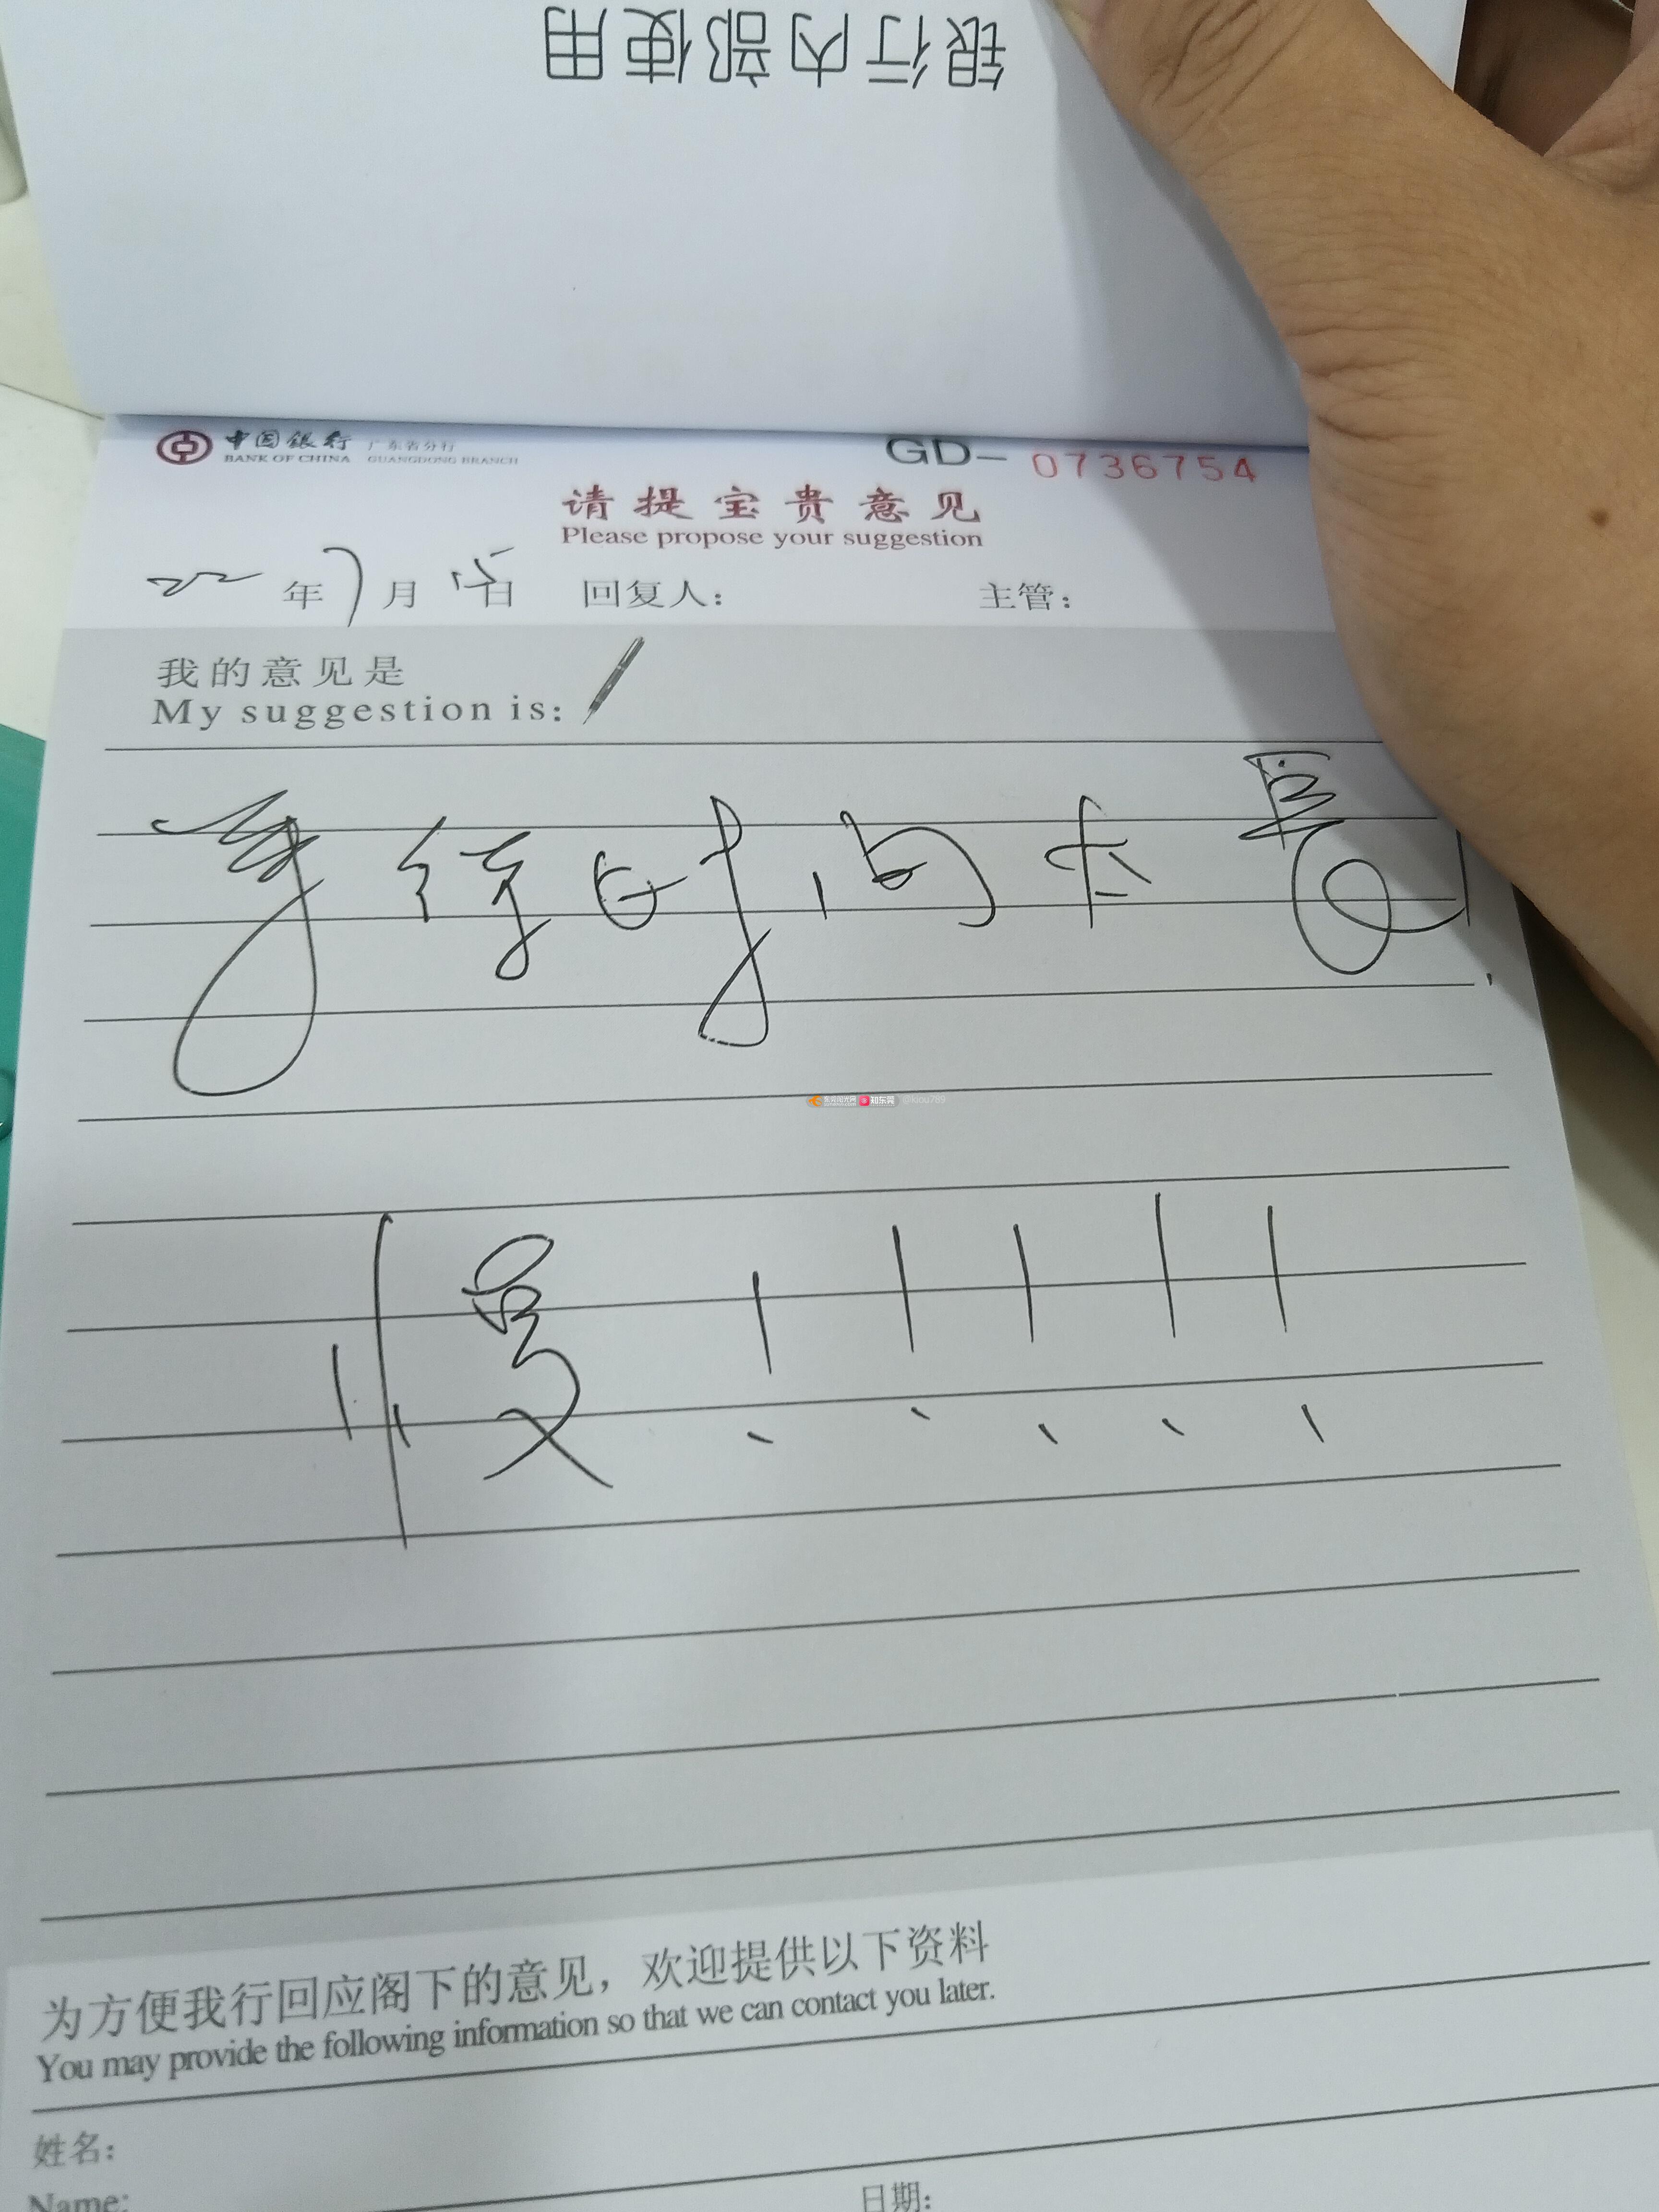 银行内部使用
中国银行 广东省分行
BANK OF CHINA GUANGDONG BRANCH
GD- 0736754
请提宝贵意见
Please propose your suggestion
22年7月15日 回复人: 主管:
我的意见是
My suggestion is:
等待时间太長
慢!!!!!
东莞阳光网 知东莞 @kiou789
为方便我行回应阁下的意见，欢迎提供以下资料
You may provide the following information so that we can contact you later.
姓名:
Name:
日期: